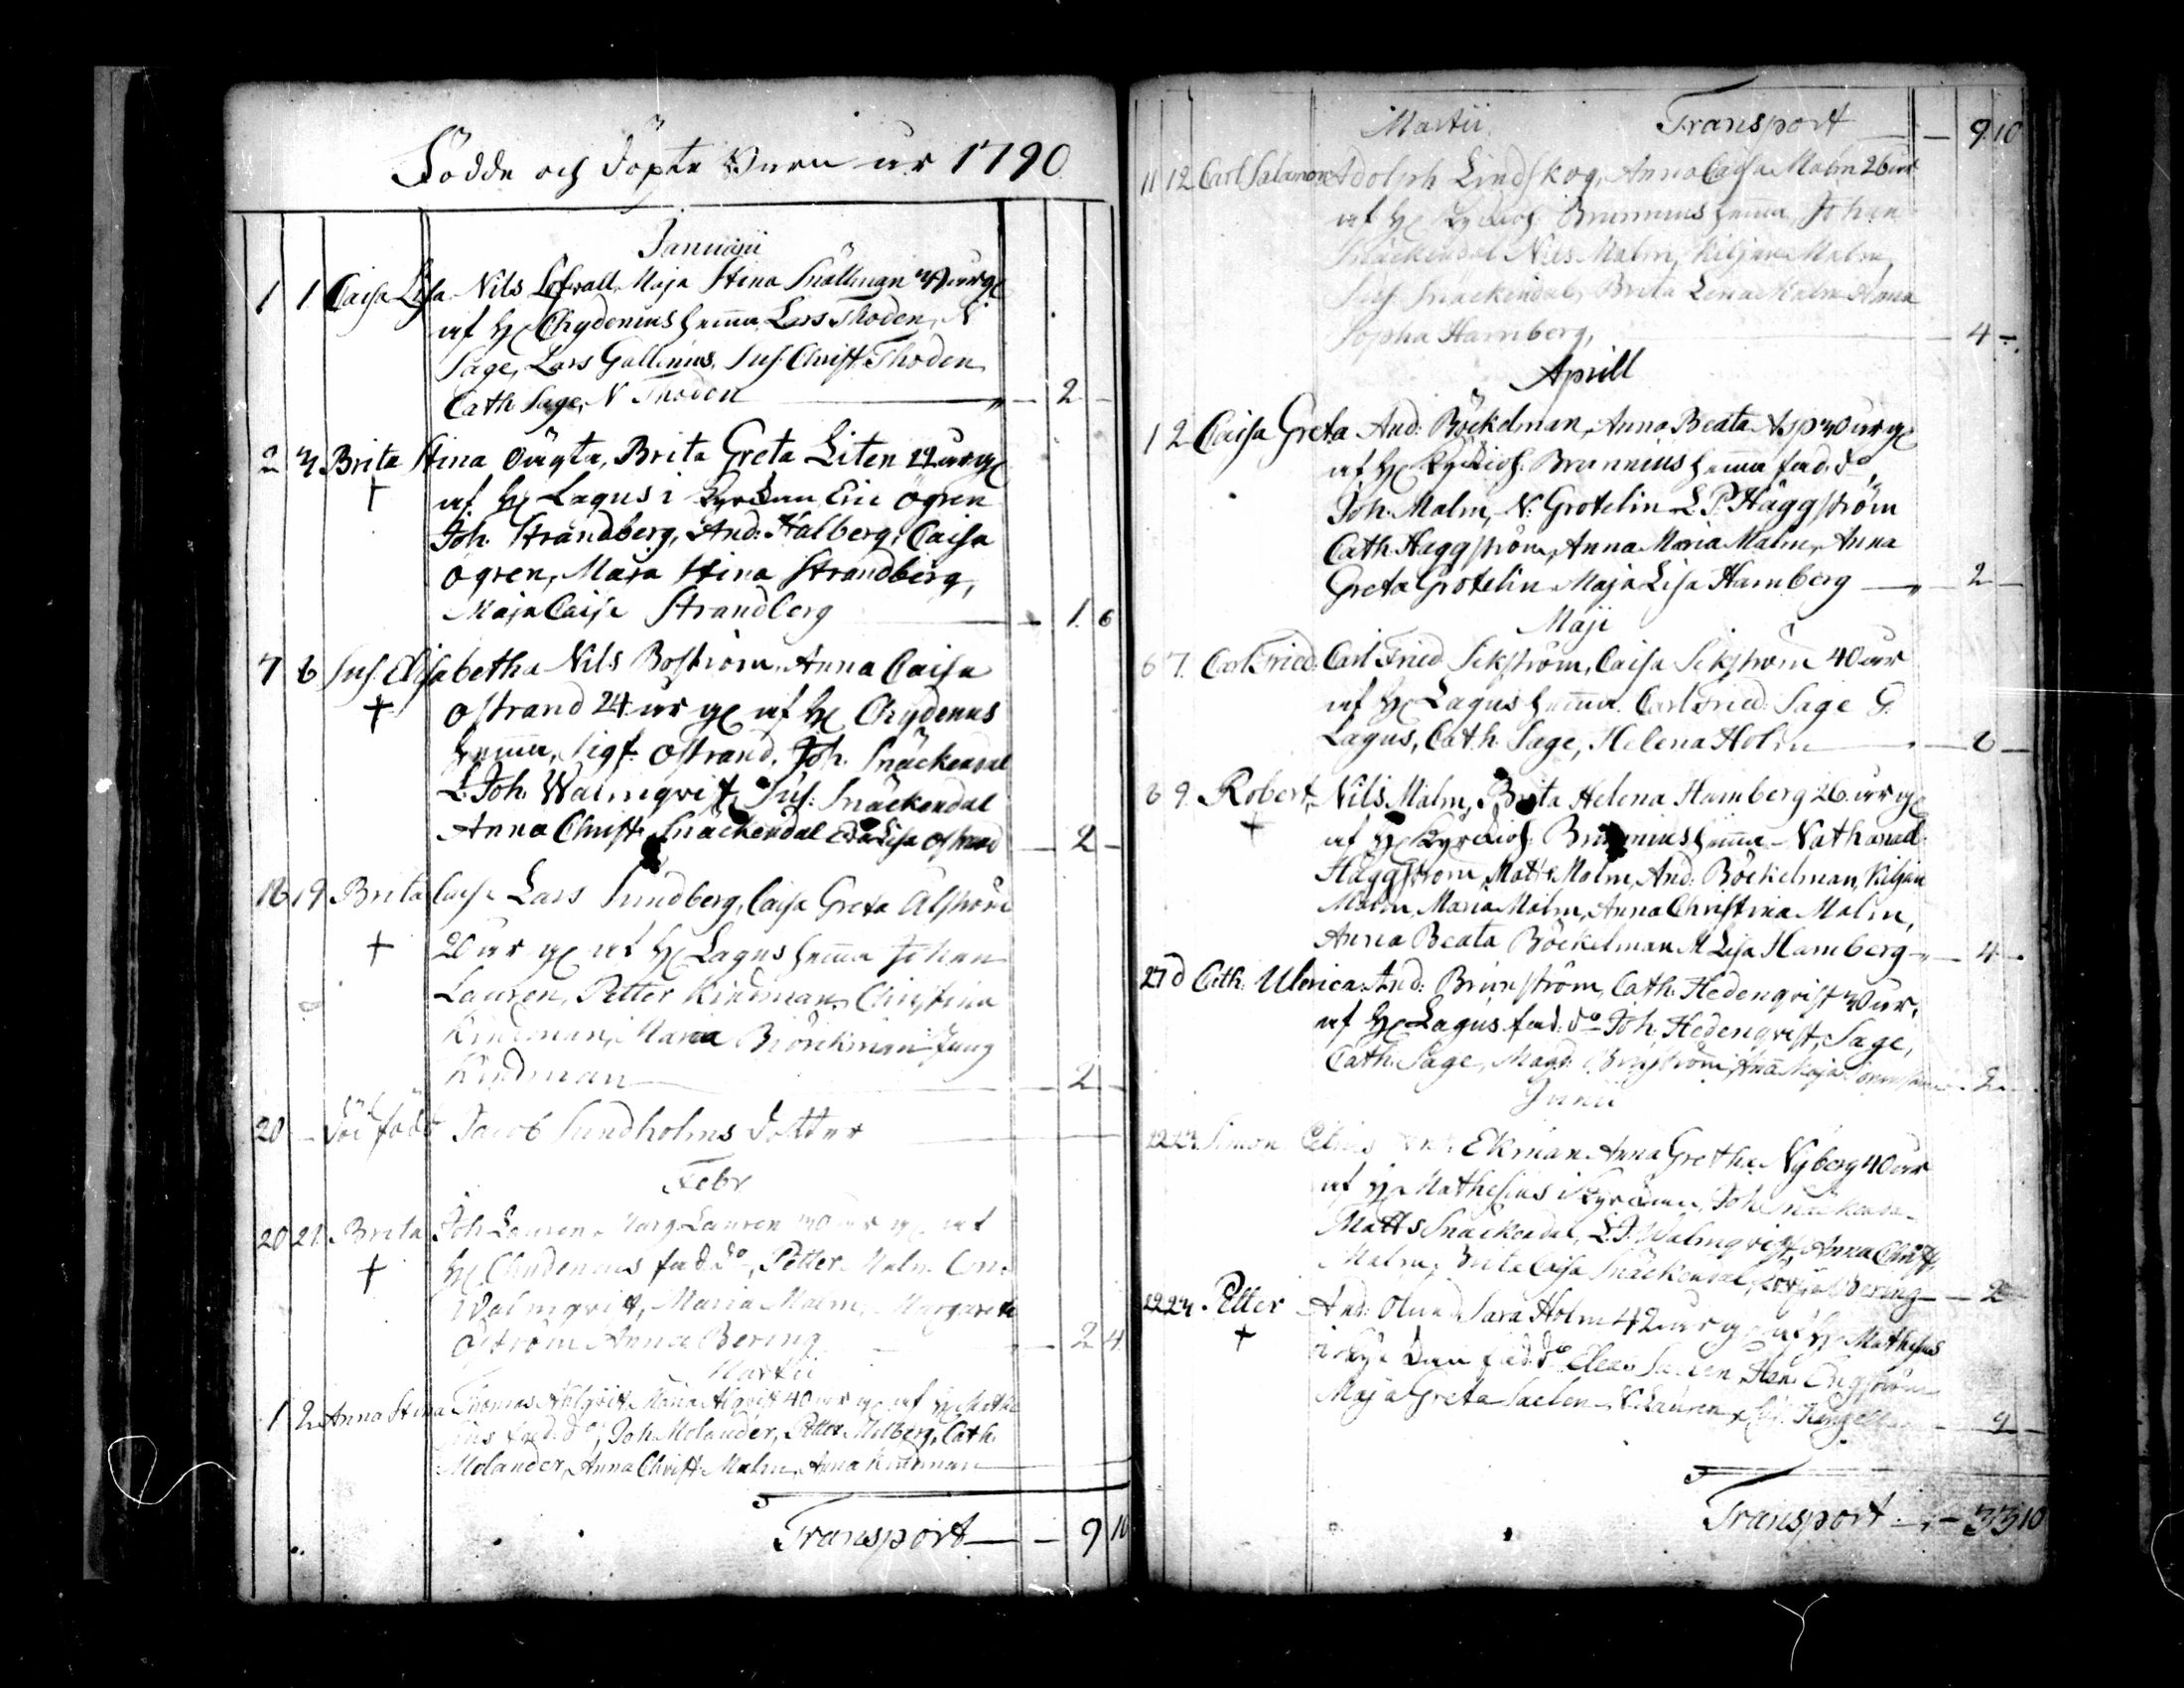 Födde och döpte Barn år 1790
Januarii
1 1 Caisa Lisa Nils Lofwall, Maja Stina Snällman 30 år gl
af H Chydenius hemma Lars Thoden, N
Sage, Lars Gallenius, Sus. Christ. Thoden
Cath Sage, N Thoden 2
2 3 Brita Stina Brita Greta Liten 22 år gl
† af H Lagus i Kyrkan Eric Ögren
Joh. Strandberg, And: Halberg, Caisa
Ögren, Maja Stina Strandberg,
Maja Caisa Strandberg 1. 6
7 8 Sus. Elisabetha Nils Boström, Anna Caisa
† Ostrand 24 år gl af H Chydenius
hemma, Sigf. Ostrand, Joh. Snäckendal
L. Joh. Walmqvist, Sus: Snäckendal
Anna Christ. Snäckendal Ostrand 2
18 19 Brita Caisa Lars Sundberg, Caisa Greta Alström
† 20 år gl af H Lagus hemma Johan
Lauren, Petter Kindman, Christina
Kindman, Maria Björckman
Kindman 2
20 Död född Jacob Sundholms dotter
Febr
20 21. Brita Joh Lauren, Marg. Lauren 30 år gl af
† H Chydenius fad. do, Petter Malm
Walmqvist, Maria Malm, Margareta
Öström Anna Bering 2 4.
Martii
1 2 Anna Stina Thomas Ahlqvist, Maria Alqvist 40 år gl af H Mathe
sius fad. do, Joh Molander, Petter Hälberg, Cath.
Molander, Anna Christ. Malm, Anna Kindman
Transport 9 10
Martii Transport 9. 10
11 12 Carl Salamon Adolph Lindskog, Anna Caisa Malm 26 år
af H Brunnius hemma, Johan
Snäckendal Nils Malm, Kiljan Malm,
Sus. Snäckendal, Brita Lena Malm Anna
Sopha Hamberg, 4
Aprill
1 2 Caisa Greta And: Böckelman, Anna Beata Asp 30 år gl
af H Brunnius hemma fad. do
Joh. Malm, N: Grotelin L. P. Häggström
Cath Häggström, Anna Maria Malm, Anna
Greta Grotelin Maja Lisa Hamberg 2
Maji
6 7. Carl Fried. Carl Fried Sekström, Caisa Sekström 40 år
af H Lagus hemma. Carl Fried: Sage G.
Lagus, Cath. Sage, Helena Holm 8
8 9. Robert, Nils Malm, Brita Helena Hamberg 26. år gl
† af H Brunnius hemma Nathanael
Häggström, Matts Malm, And: Böckelman, Kiljan
Malm, Maria Malm, Anna Christina Malm,
Anna Beata Böckelman M Lisa Hamberg 4
27 d Cath: Ulrica. And: Brunström, Cath. Hedenqvist 30 år,
af H Lagus fad. do Joh. Hedenqvist, Sage,
Cath. Sage, Magd: Anna Maja 2
Junii
22 23. Simon Ekman Anna Gretha Nyberg 40 år
af H Mathesius i Kyrckan, Joh. Snäckendal
Matts Snäckendal, L. J. Walmqvist, Anna Christ.
Malm, Brita Caisa Snäckendal, Bering 2
22 23. Petter And. Ölund, Sara Holm 42 år gl af H Mathesius
† i Kyrckan fad. do Engström
Maja Greta Saelen Lauren
Transport 33 10